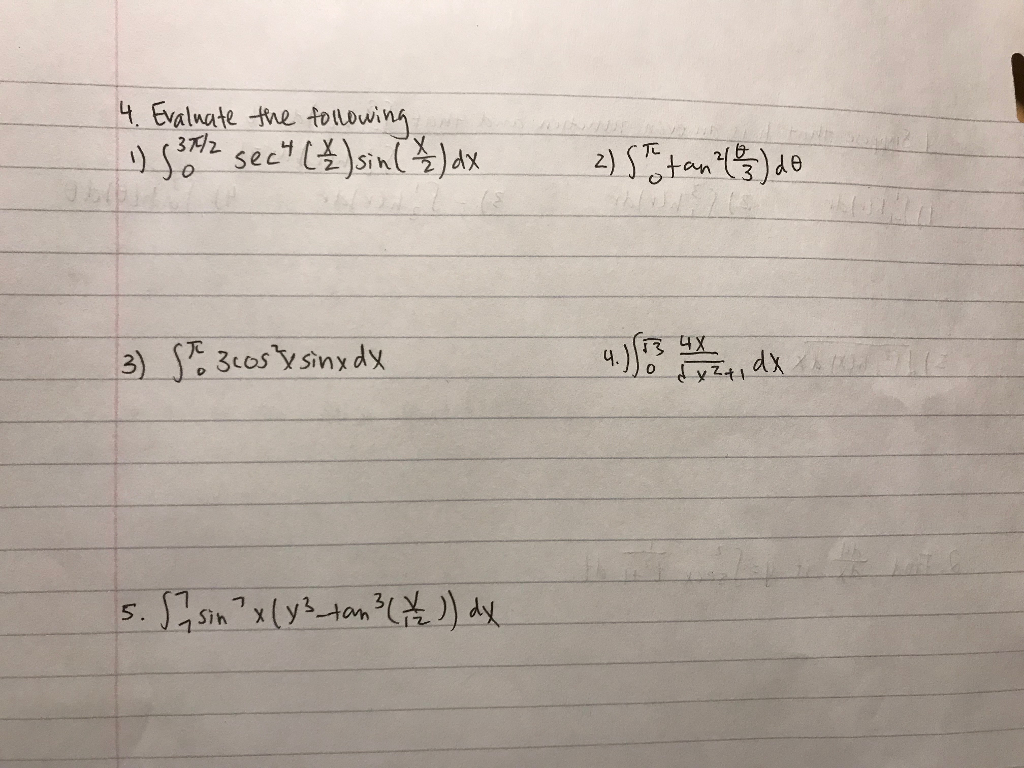 4. Evaluate the following
1) ∫₀^{3π/2} sec⁴(x/2)sin(x/2)dx 2) ∫₀^π tan²(θ/3)dθ
3) ∫₀^π 3cos²x sinx dx 4.) ∫₀^{√3} 4x/√x²+1 dx
5. ∫₇⁷ sin⁷x(y³-tan³(y/12)) dx